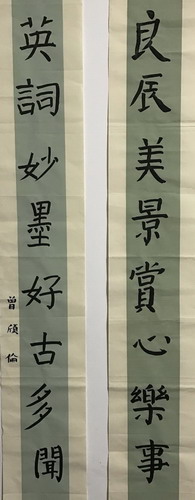 良辰美景賞心樂事
英詞妙墨好古多聞
曾頎倫